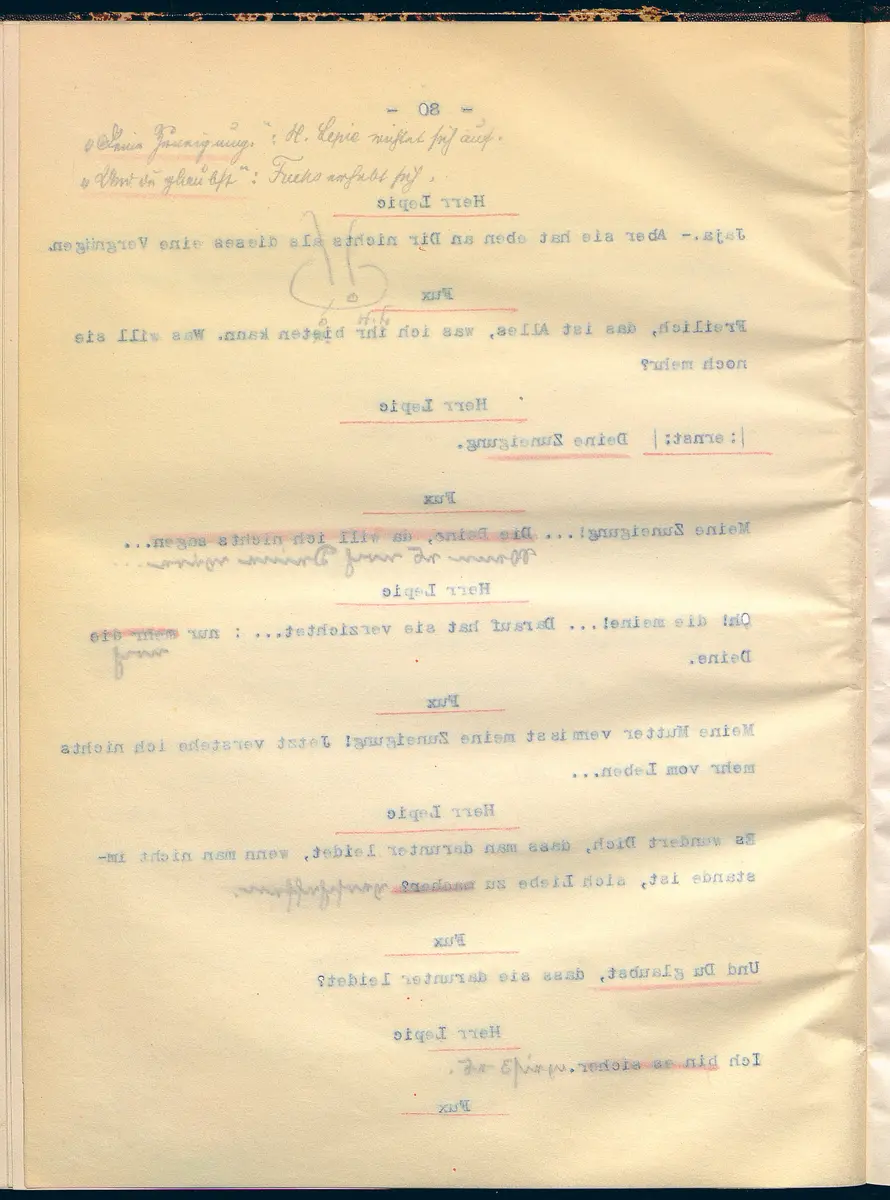 - 80 -
„Deine Zuneigung.": H. Lepic richtet sich auf.
„Und du glaubst": Fuchs erhebt sich.
Herr Lepic
Jaja.- Aber sie hat eben an Dir nichts als dieses eine Vergnügen.
Fux
Freilich, das ist Alles, was ich ihr bieten kann. Was will sie
noch mehr?
Herr Lepic
|:ernst:| Deine Zuneigung.
Fux
Meine Zuneigung!... Die Deine, da will ich nichts sagen...
Wenn es noch Deine wäre...
Herr Lepic
Oh! die meine!... Darauf hat sie verzichtet... : nur mehr die
noch
Deine.
Fux
Meine Mutter vermisst meine Zuneigung! Jetzt verstehe ich nichts
mehr vom Leben...
Herr Lepic
Es wundert Dich, dass man darunter leidet, wenn man nicht im-
stande ist, sich Liebe zu machen? verschaffen.
Fux
Und Du glaubst, dass sie darunter leidet?
Herr Lepic
Ich bin es sicher. weiß es.
Fux